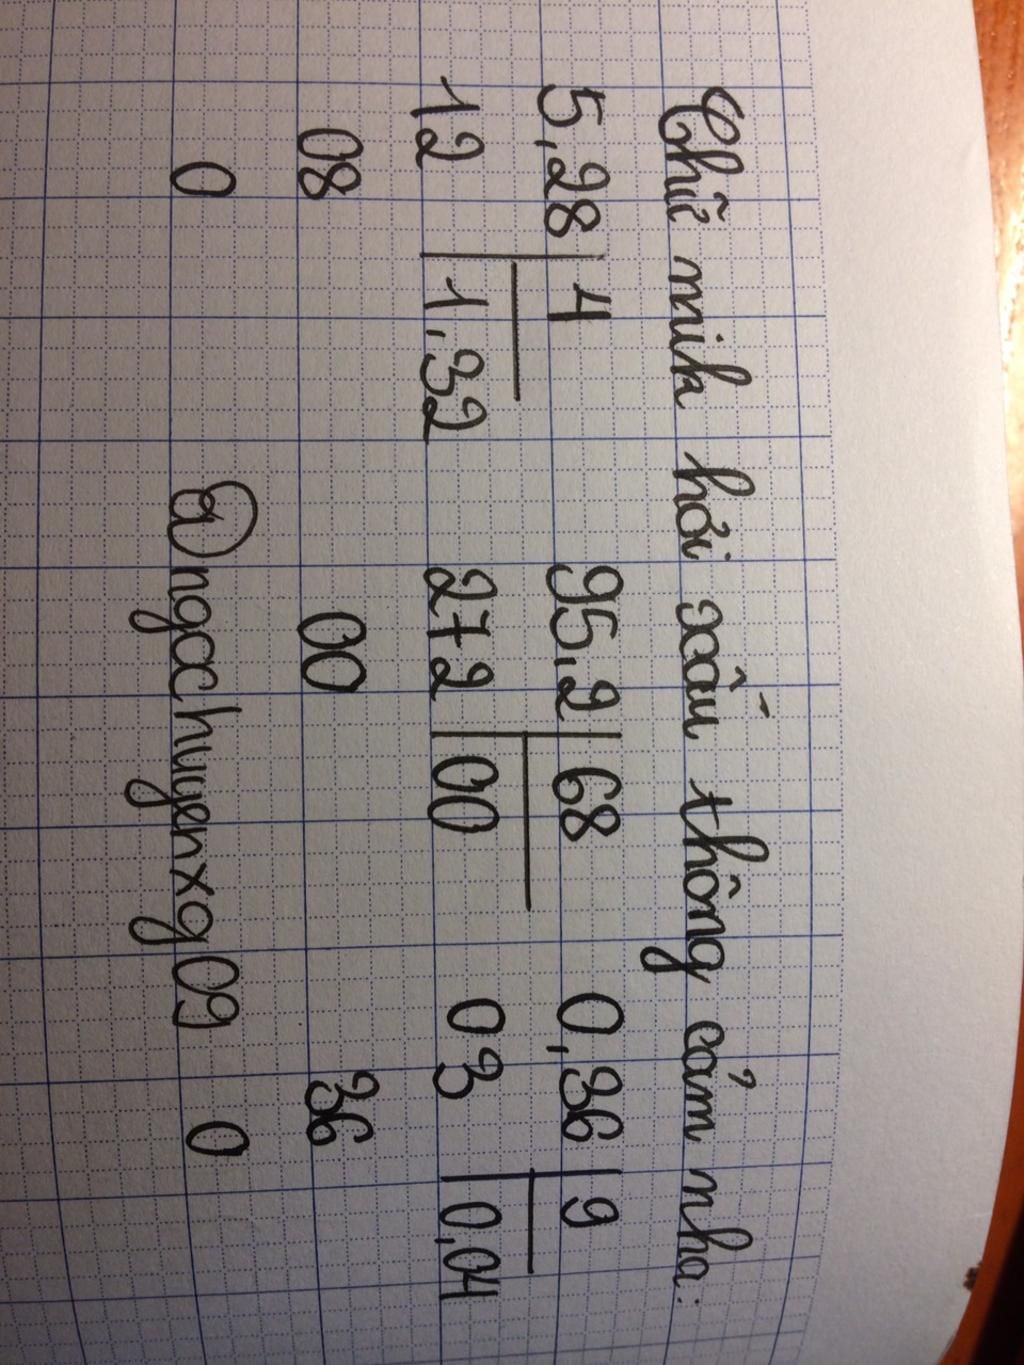 Chữ mình hơi xấu thông cảm nha:
5,28 4 95,2 68 0,36 9
12 1,32 272 00 03 0,04
08 00 36
0 @ngochuyenxg09 0